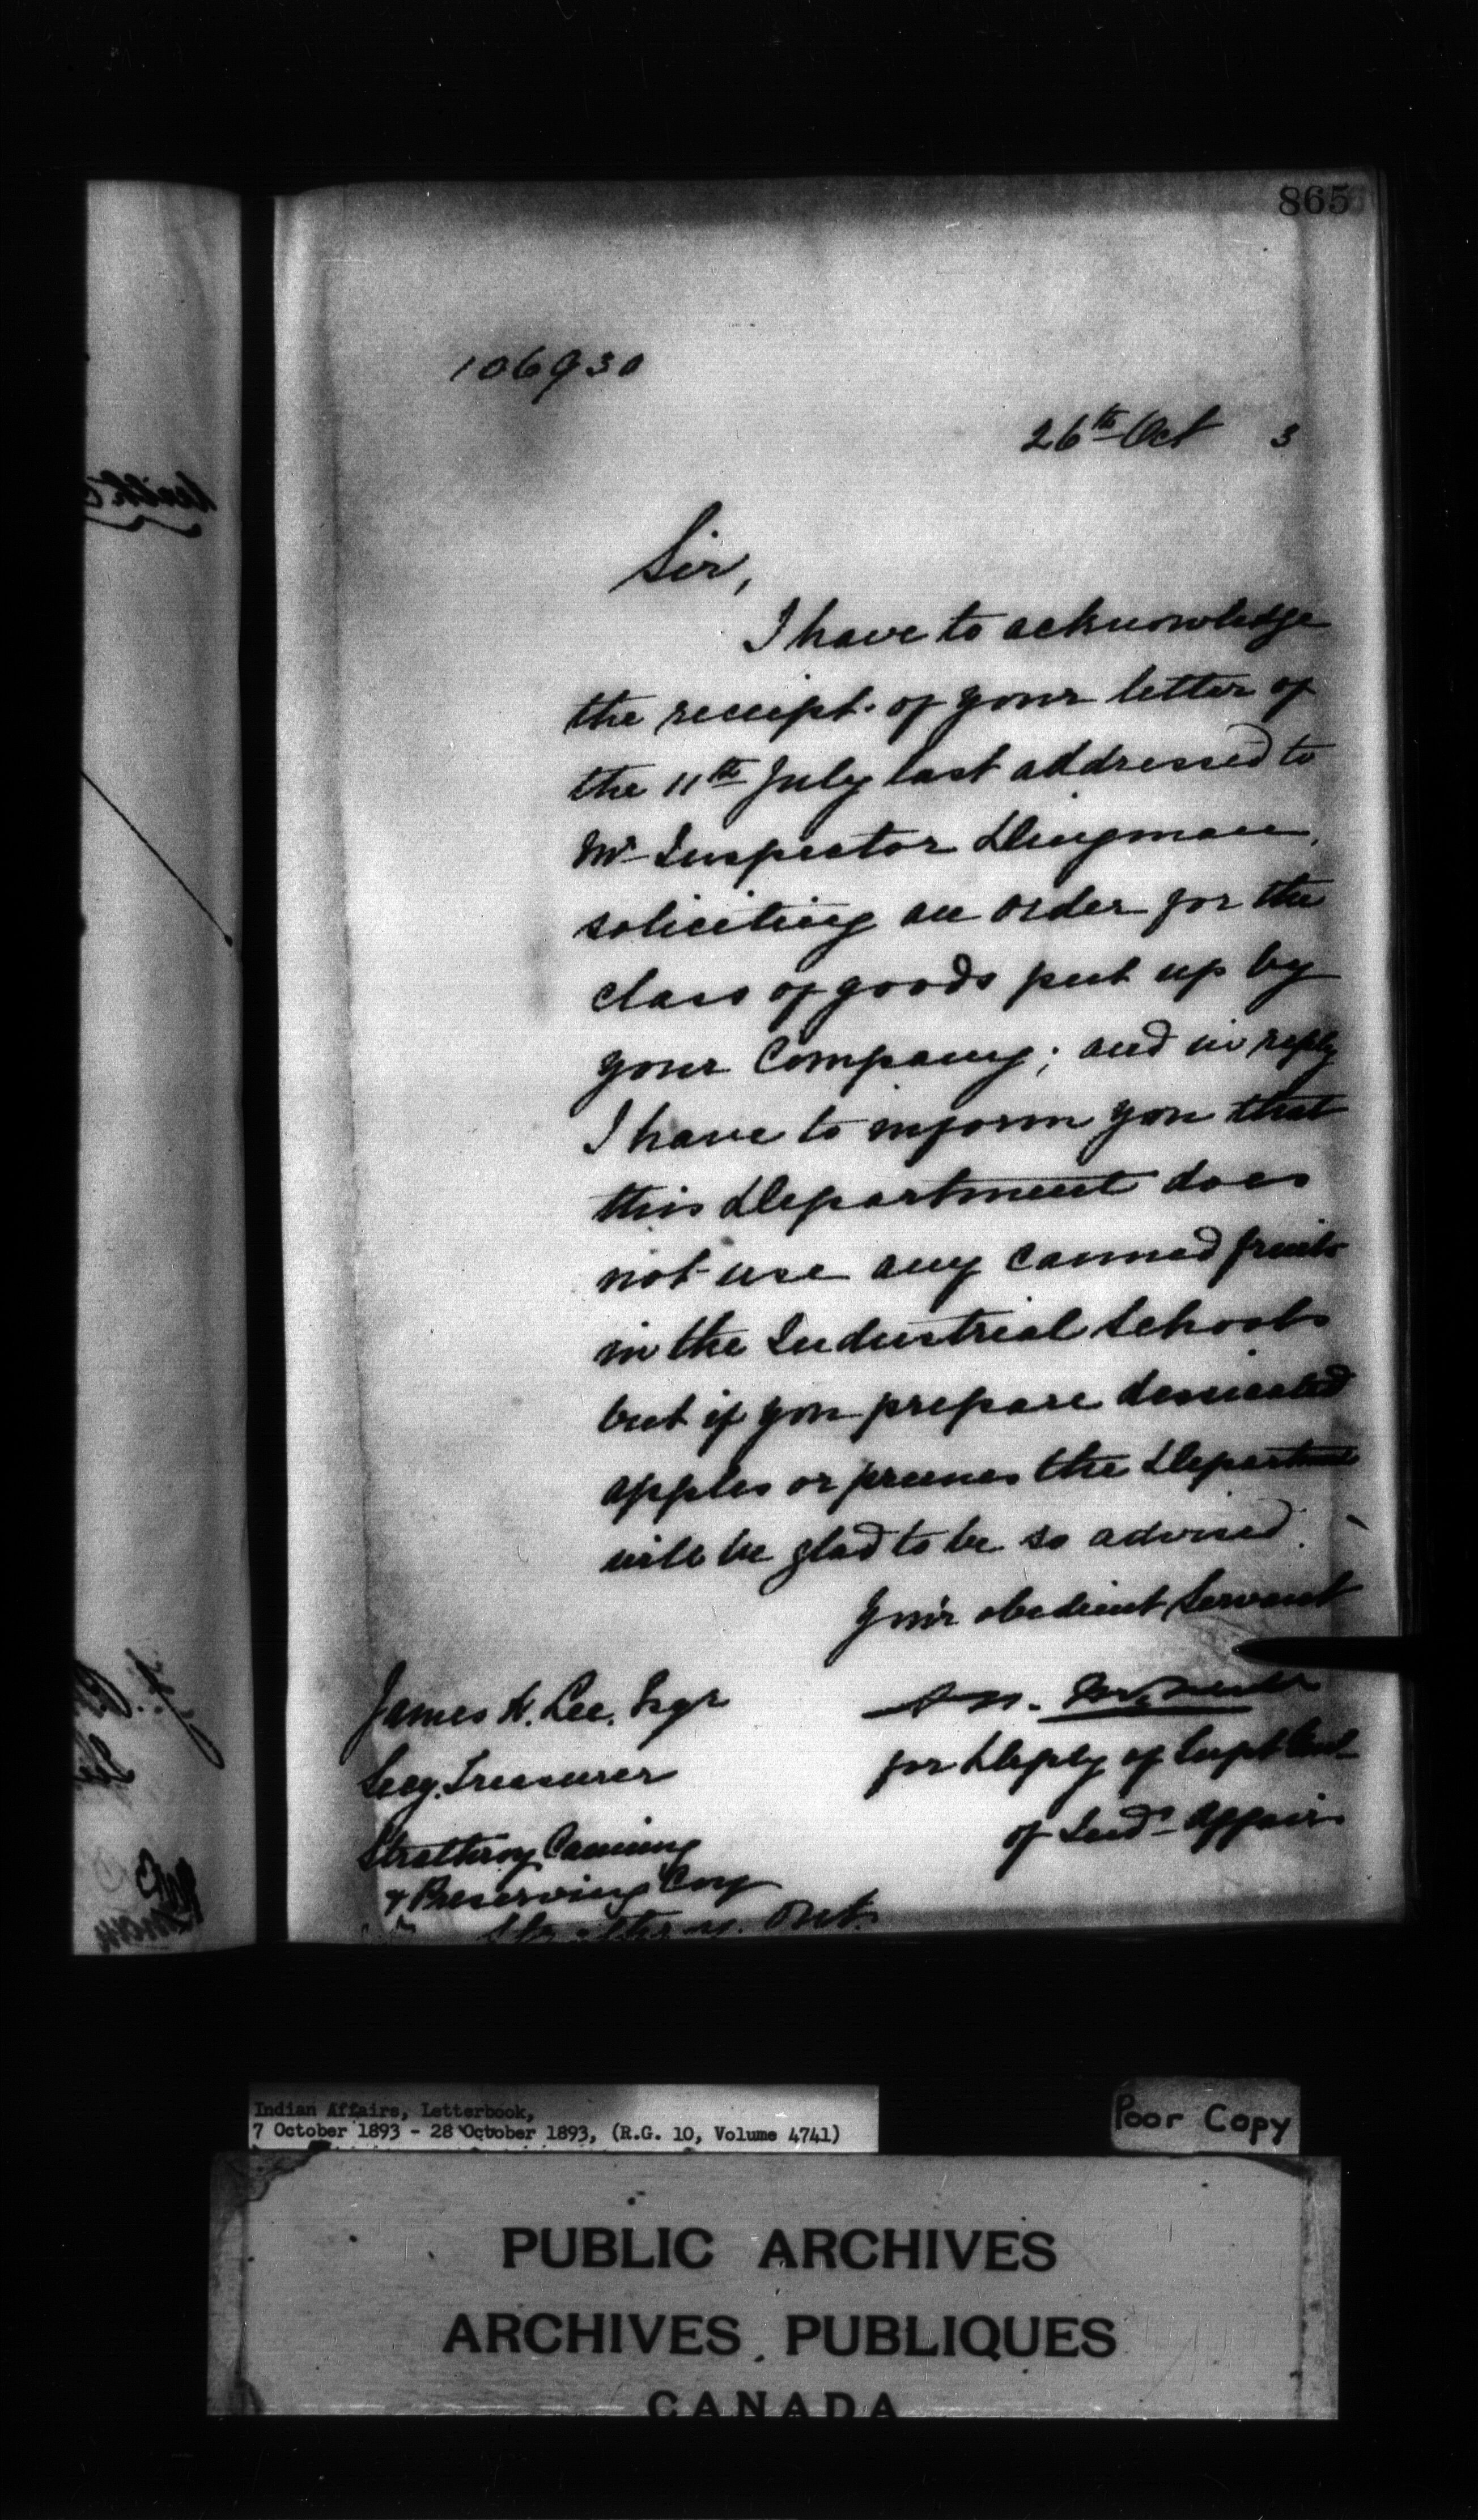 865
106930
26th Oct 3
Sir,
I have to acknowledge
the receipt of your letter of
the 11th July last addressed to
Mr Inspector Dingman,
soliciting an order for the
class of goods put up by
your Company; and in reply
I have to inform you that
this Department does
not use any canned fruits
in the Industrial Schools
but if you prepare dessicated
apples or prunes the Department
will be glad to be so advised.
Your obedient Servant
James H. Lee, Esqr
Secy. Treasurer
Strathroy Canning
& Preserving Coy
Strathroy. Ont.
for Depty of Supt Genl
of Indn Affairs
Indian Affairs, Letterbook,
7 October 1893 - 28 October 1893, (R.G. 10, Volume 4741)
Poor Copy
PUBLIC ARCHIVES
ARCHIVES PUBLIQUES
CANADA